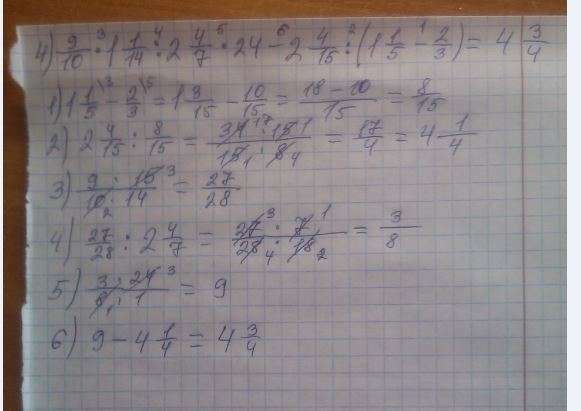 4) 9/10 ·³ 1 1/14 :⁴ 2 4/7 ·⁵ 24 -⁶ 2 4/15 :² (1 1/5 -¹ 2/3) = 4 3/4
1) 1 1/5 \3 - 2/3 \5 = 1 3/15 - 10/15 = 18 - 10/15 = 8/15
2) 2 4/15 : 8/15 = 34 17 · 15 1/15 1 · 8 4 = 17/4 = 4 1/4
3) 9 · 15 3/10 2 · 14 = 27/28
4) 27/28 : 2 4/7 = 27 3 · 7 1/28 4 · 18 2 = 3/8
5) 3 · 24 3/8 1 · 1 = 9
6) 9 - 4 1/4 = 4 3/4